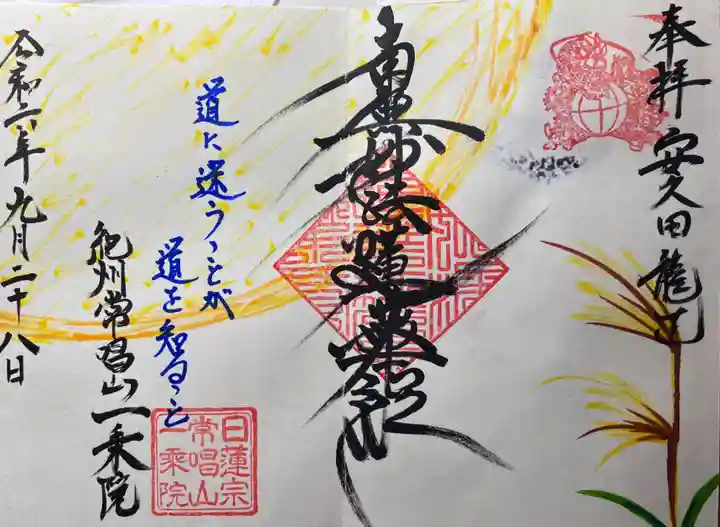 奉拝
安久田龍王
南無妙法蓮華経
道に迷うことが
道を知ること
日蓮宗
常唱山
一乘院
紀州常唱山一乗院
令和六年九月二十八日